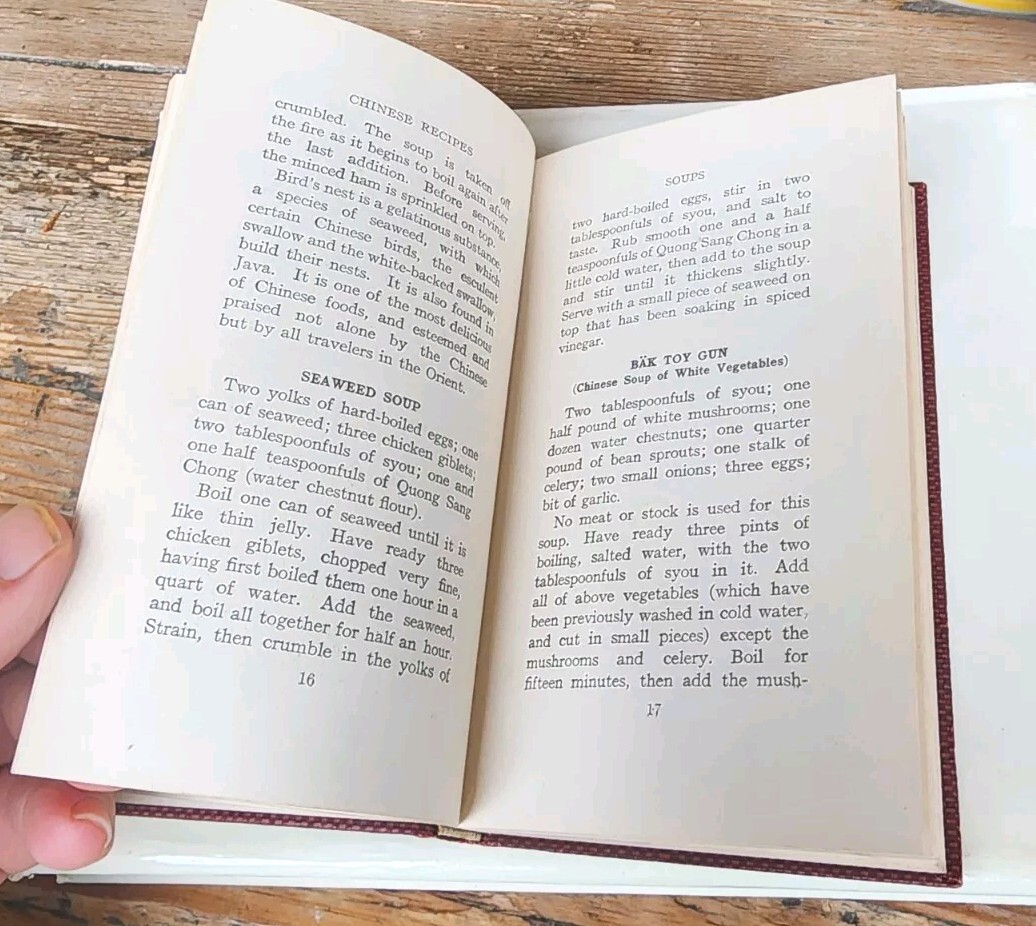 CHINESE RECIPES
crumbled. The soup is taken off
the fire as it begins to boil again after
the last addition. Before serving,
the minced ham is sprinkled on top.
Bird's nest is a gelatinous substance,
a species of seaweed, with which
certain Chinese birds, the esculent
swallow and the white-backed swallow,
build their nests. It is also found in
Java. It is one of the most delicious
of Chinese foods, and esteemed and
praised not alone by the Chinese
but by all travelers in the Orient.
SEAWEED SOUP
Two yolks of hard-boiled eggs; one
can of seaweed; three chicken giblets;
two tablespoonfuls of syou; one and
one half teaspoonfuls of Quong Sang
Chong (water chestnut flour).
Boil one can of seaweed until it is
like thin jelly. Have ready three
chicken giblets, chopped very fine,
having first boiled them one hour in a
quart of water. Add the seaweed,
and boil all together for half an hour.
Strain, then crumble in the yolks of
16
SOUPS
two hard-boiled eggs, stir in two
tablespoonfuls of syou, and salt to
taste. Rub smooth one and a half
teaspoonfuls of Quong Sang Chong in a
little cold water, then add to the soup
and stir until it thickens slightly.
Serve with a small piece of seaweed on
top that has been soaking in spiced
vinegar.
BÄK TOY GUN
(Chinese Soup of White Vegetables)
Two tablespoonfuls of syou; one
half pound of white mushrooms; one
dozen water chestnuts; one quarter
pound of bean sprouts; one stalk of
celery; two small onions; three eggs;
bit of garlic.
No meat or stock is used for this
soup. Have ready three pints of
boiling, salted water, with the two
tablespoonfuls of syou in it. Add
all of above vegetables (which have
been previously washed in cold water,
and cut in small pieces) except the
mushrooms and celery. Boil for
fifteen minutes, then add the mush-
17